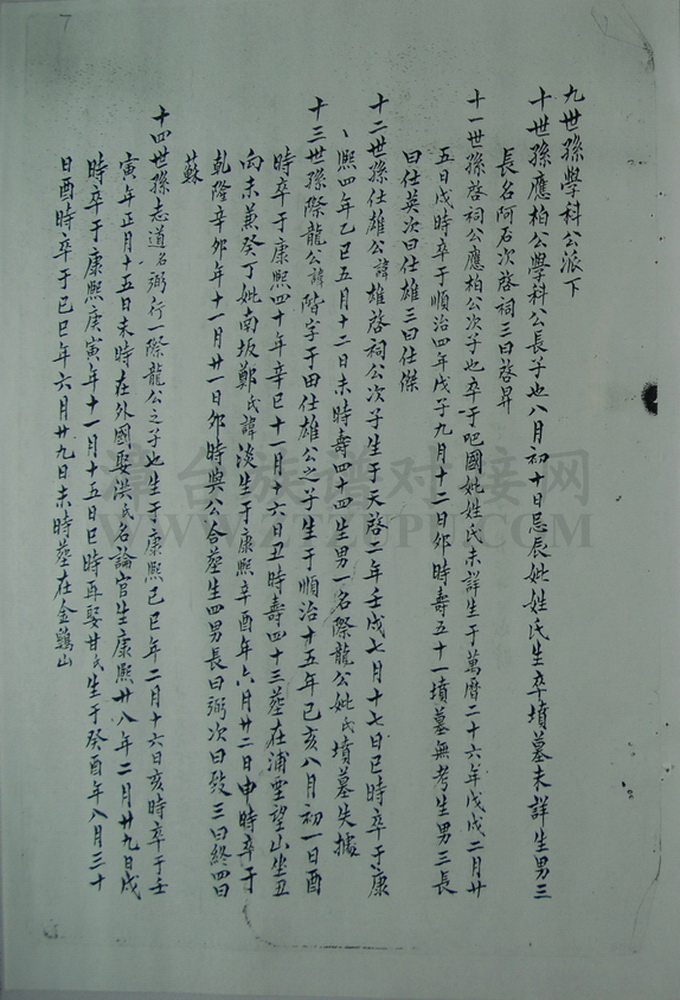 7
九世孫學科公派下
十世孫應柏公學科公長子也八月初十日忌辰妣姓氏生卒墳墓未詳生男三
長名阿石次啓祠三曰啓昇
十一世孫啓祠公應柏公次子也卒于吧國妣姓氏未詳生于萬曆二十六年戊戌二月廿
五日戌時卒于順治四年戊子九月十二日卯時壽五十一墳墓無考生男三長
曰仕英次曰仕雄三曰仕傑
十二世孫仕雄公諱雄啓祠公次子生于天啓二年壬戌七月十七日巳時卒于康
熙四年乙巳五月十二日未時壽四十四生男一名際龍公妣氏墳墓失據
十三世孫際龍公諱階字于田仕雄公之子生于順治十五年己亥八月初一日酉
時卒于康熙四十年辛巳十一月十六日丑時壽四十三塟在浦堊望山坐丑
向未兼癸丁妣南坂鄭氏諱淡生于康熙辛酉年六月廿二日申時卒于
乾隆辛卯年十一月廿一日卯時與公合塟生四男長曰弼次曰發三曰終四曰
蘇
十四世孫志道名弼行一際龍公之子也生于康熙己巳年二月十六日亥時卒于壬
寅年正月十五日未時在外國娶洪氏名論官生康熙廿八年二月廿九日戌
時卒于康熙庚寅年十一月十五日巳時再娶甘氏生于癸酉年八月三十
日酉時卒于己巳年六月廿九日未時塟在金鷄山
台族谱对接网
WWW.ZTZUPU.COM